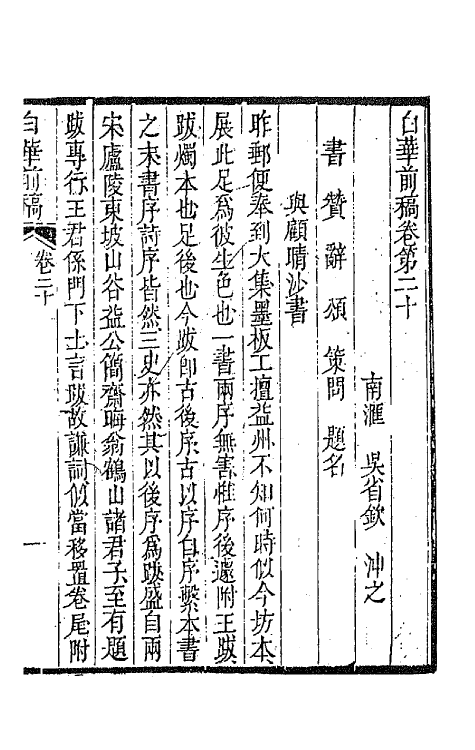 白華前稿卷第二十
南滙　吳省欽　沖之
書　贊　辭　頌　策問　題名
與顧晴沙書
昨郵便奉到大集墨板工擅益州不知何時似今坊本
展此足爲彼生色也一書兩序無害惟序後遽附王跋
跋燭本也足後也今跋即古後序古以序自序繫本書
之末書序詩序皆然三史亦然其以後序爲跋盛自兩
宋廬陵東坡山谷益公簡齋晦翁鶴山諸君子至有題
跋專行王君係門下士言跋故謙詞似當移置卷尾附
白華前稿　卷二十　一